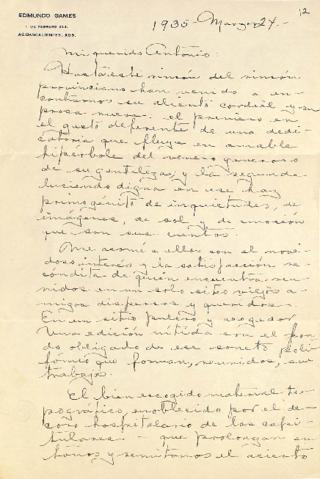 EDMUNDO GAMES
1 DE FEBRERO 214.
AGUASCALIENTES, AGS.
12
1935 - Marzo 24. -
Mi querido Antonio:
Hasta este rincón del rincón
provinciano han venido a en-
contrarnos su aliento cordial y su
prosa nueva: el primero en
el gesto deferente de una dedi-
catoria que fluye en amable
hipérbole del venero generoso
de su gentileza, y la segunda
luciendo digna en ese haz
primogénito de inquietudes, de
imágenes, de sol y de emoción
que son sus cuentos.
Me asomé a ellos con el
interés y la satisfacción re-
cóndita de quien encuentra reu-
nidos en un solo sitio viejos a-
migos dispersos y queridos.
En un sitio pulcro y acogedor
Una edición nítida con el fon-
do obligado de ese soneto poli-
fónico que forman, reunidos, sus
trabajos.
El bien escogido material ti-
pográfico, ennoblecido por el de-
coro hospitalario de las capi-
tulares - que prolongan en
tonos y semitonos el acento